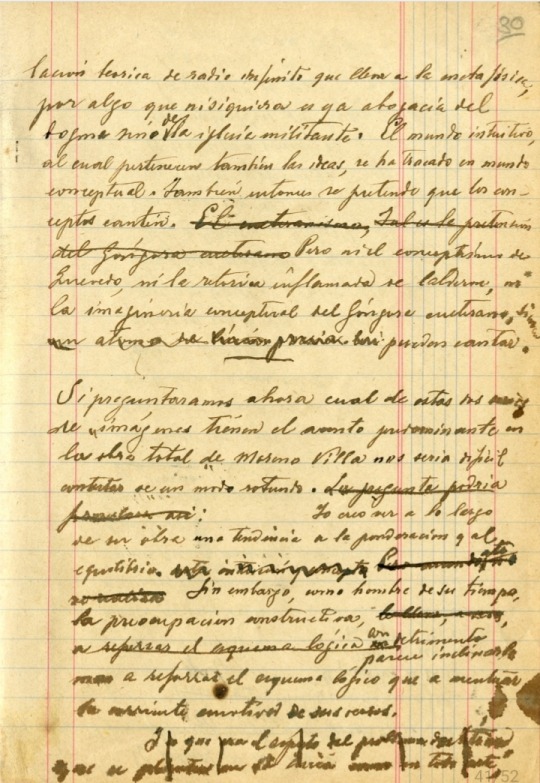 30
lación teorica de radio infinito que lleva a la metafísica,
por algo que nisiquiera es ya abogacía del
dogma sinó de la iglesia militante. El mundo intuitivo,
al cual pertenecen también las ideas, se ha trocado en mundo
conceptual. Tambien entonces se pretende que los con-
ceptos canten. El culteranismo, Tal es la pretensión
del Góngora culterano Pero ni el conceptismo de
Quevedo, ni la retórica inflamada de Calderon, ni
la imaginería conceptual del Góngora culterano,
un atomo de lirica pueden cantar.
Si preguntaramos ahora cual de estos dos modos
de imágenes tienen el acento predominante en
la obra total de Moreno Villa nos seria dificil
contestar de un modo rotundo. La pregunta podria
formularse asi: Yo creo ver a lo largo
de su obra una tendencia a la ponderación y al
equilibrio.
no realiza Sin embargo, como hombre de su tiempo,
la preocupación constructiva, le lleva, a veces,
a reforzar el esquema lógico con detrimento
parece inclinarle
mas a reforzar el esquema lógico que a aumentar
la corriente emotiva de sus cosas.
Lo que era el aspecto del problema
que se
41352